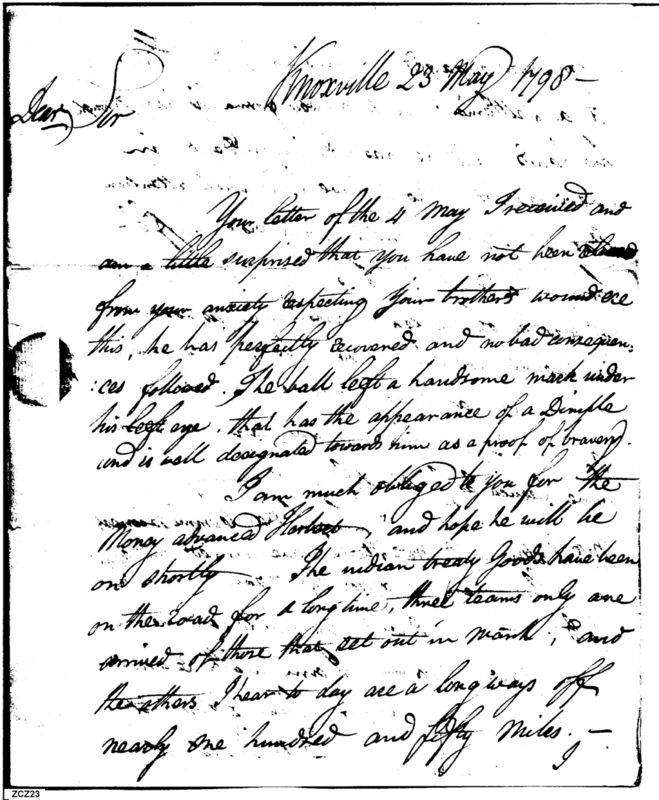 Knoxville 23 May 1798 —
Dear Sir
Your letter of the 4 May I received and
am a little surprised that you have not been
from your anxiety respecting your brother's wound ere
this, he has perfectly recovered and no bad consequen:
:ces followed. The ball left a handsome mark under
his left eye, that has the appearance of a Dimple
and is well designated towards him as a proof of bravery.
I am much obliged to you for the
Money advanced and hope he will be
on shortly The indian treaty Goods have been
on the road for a long time, three teams only are
arrived of those that set out in March, and
the others I hear to day are a long ways off
nearly one hundred and fifty Miles. —
ZCZ23